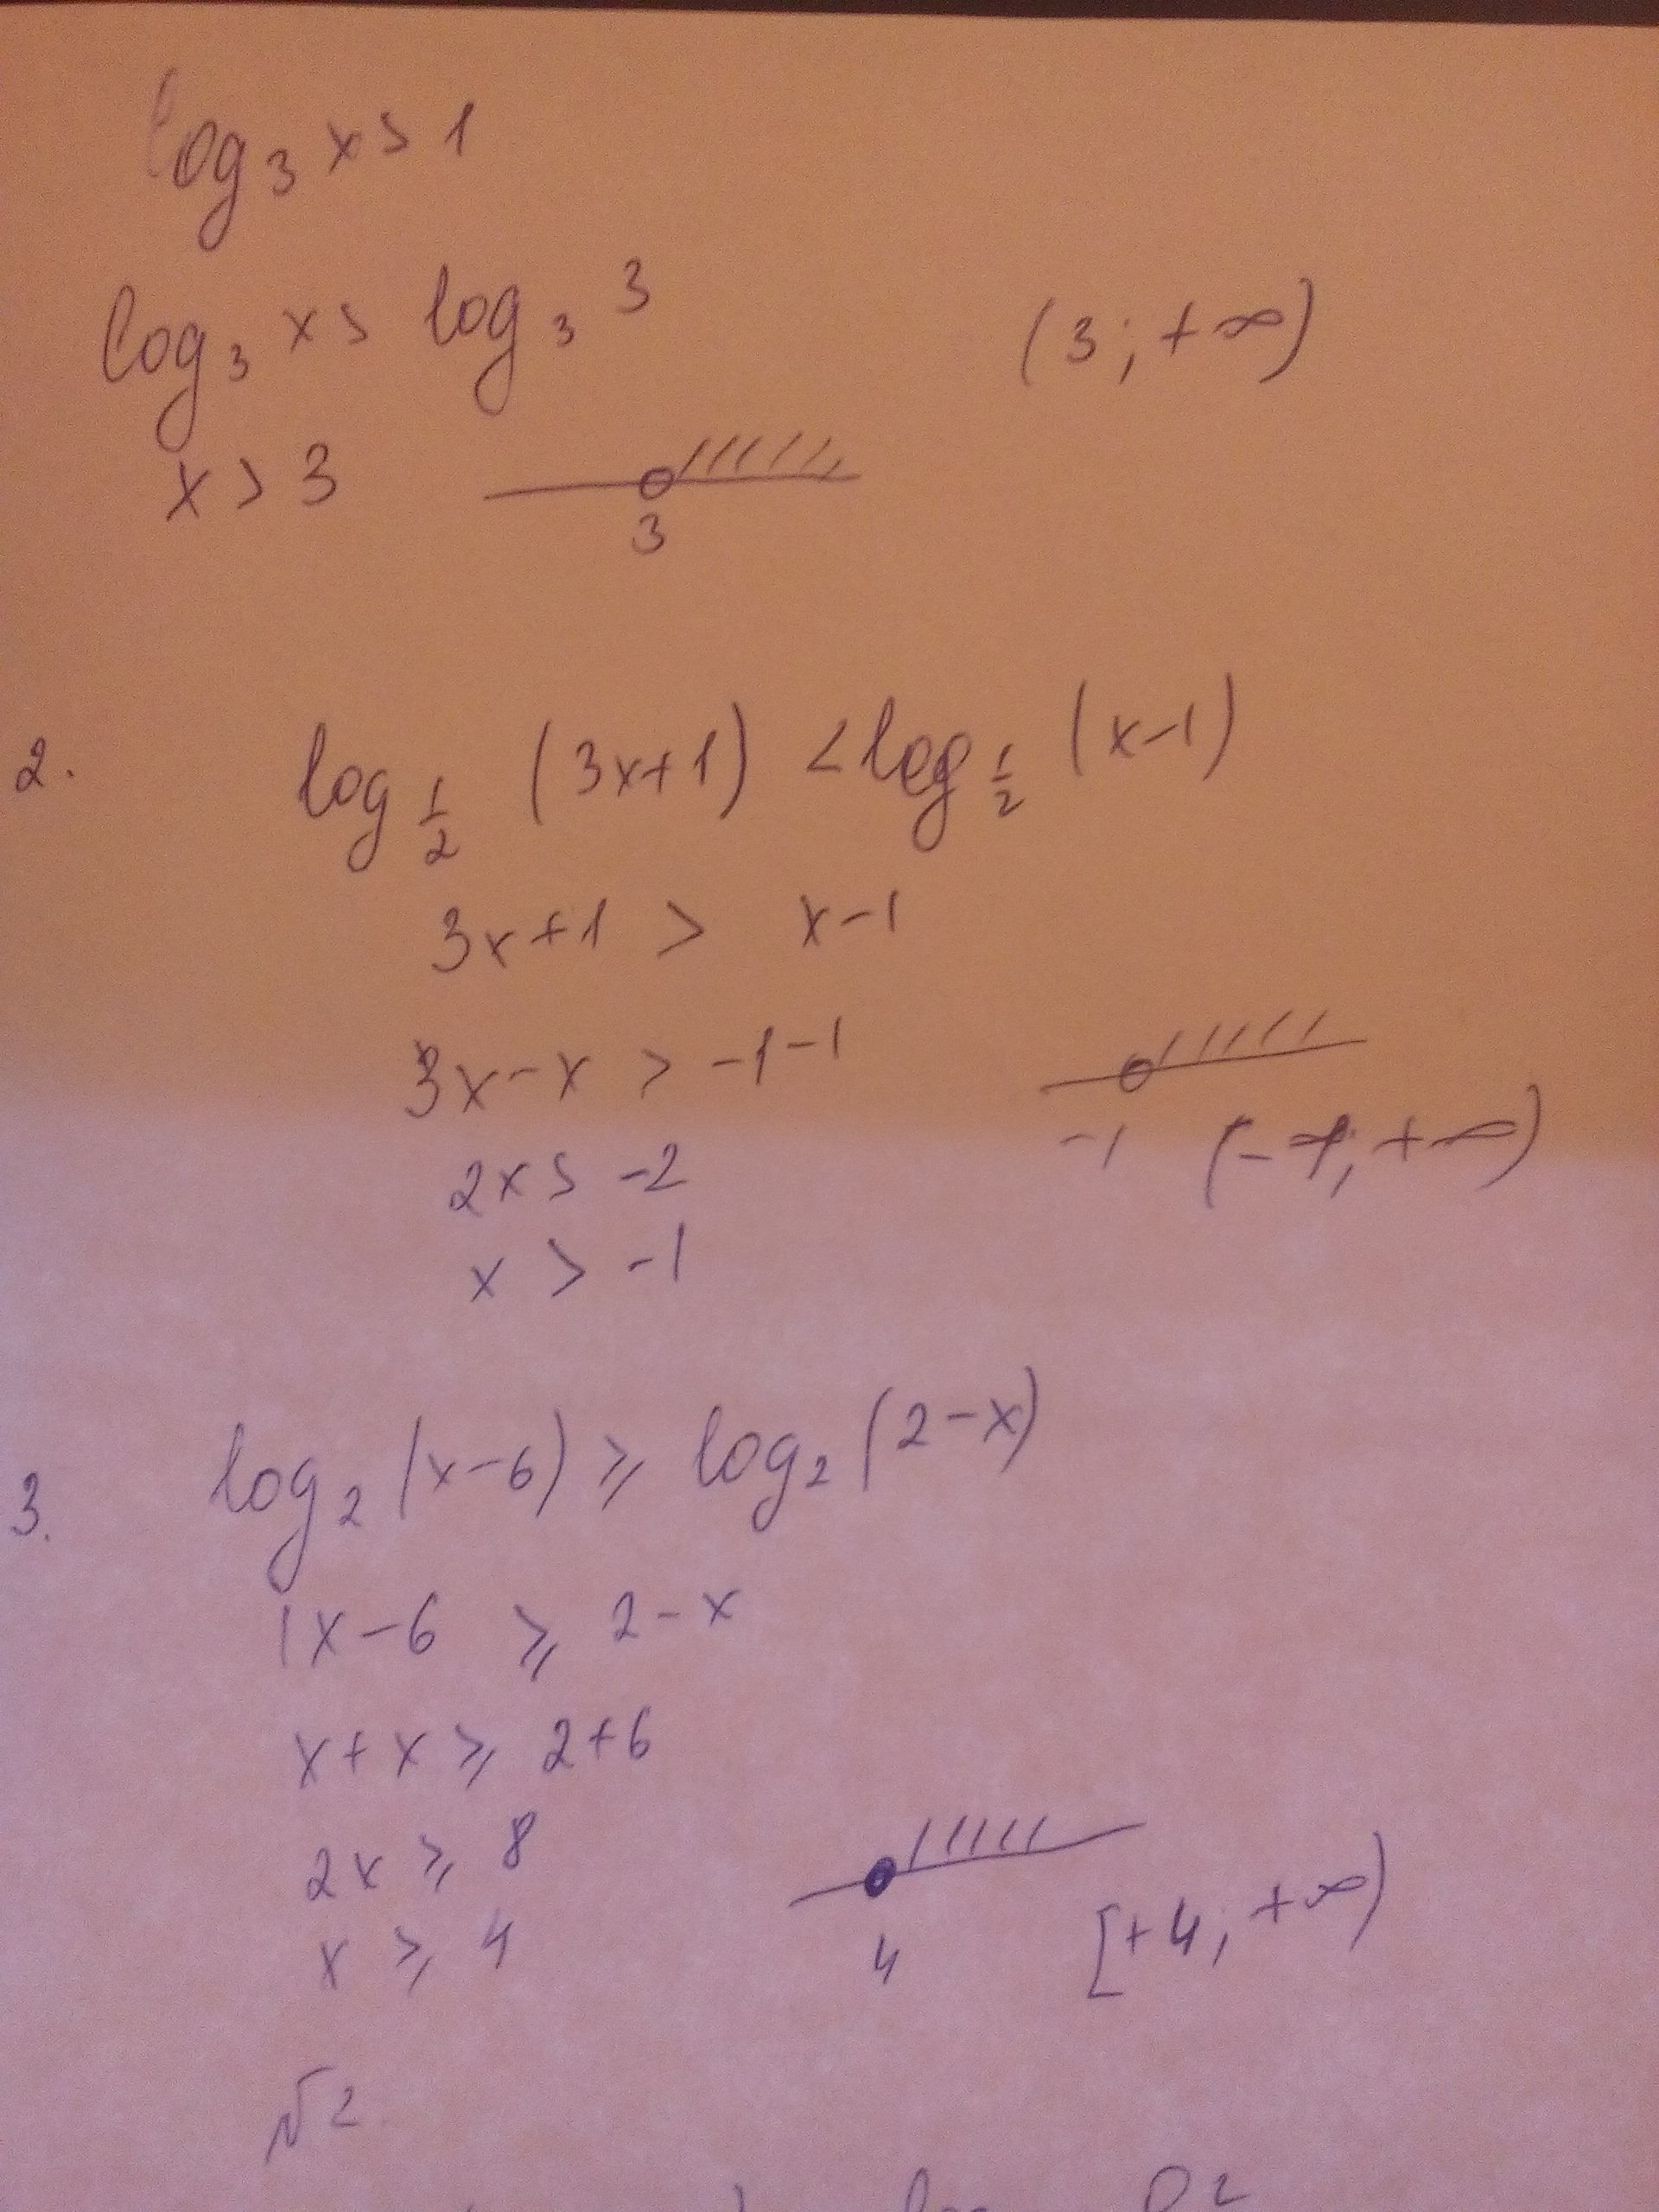 log₃ x > 1
log₃ x > log₃ 3 (3; +∞)
x > 3
3
2. log_{1/2} (3x+1) < log_{1/2} (x-1)
3x+1 > x-1
3x-x > -1-1
-1 (-1; +∞)
2x > -2
x > -1
3. log₂ (x-6) ⩾ log₂ (2-x)
x-6 ⩾ 2-x
x+x ⩾ 2+6
2x ⩾ 8
x ⩾ 4
4 [+4; +∞)
√2